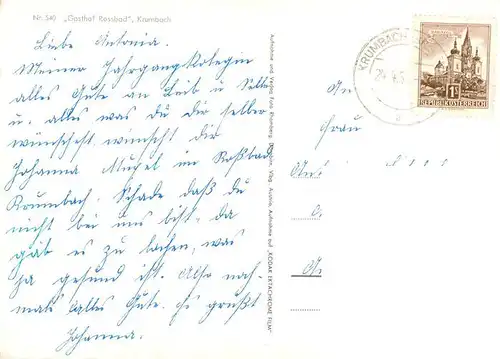 Nr. 540 „Gasthof Rossbad", Krumbach
Liebe Antonia.
Meiner Jahrgangkolegin
alles Gute an Leib u. Seele
u. alles was du dir selber
wünschst wünscht dir
Johanna im Roßbad
Krumbach. Schade daß du
nicht bei uns bist. da
gäb es zu lachen, was
ja gesund ist. Also noch-
mals alles Gute. Es grüßt
Johanna.
Aufnahme und Verlag Foto Vbg. Austria. Aufnahme auf „KODAK EKTACHROME FILM"
KRUMBACH
REPUBLIK ÖSTERREICH
1S
An
Frau